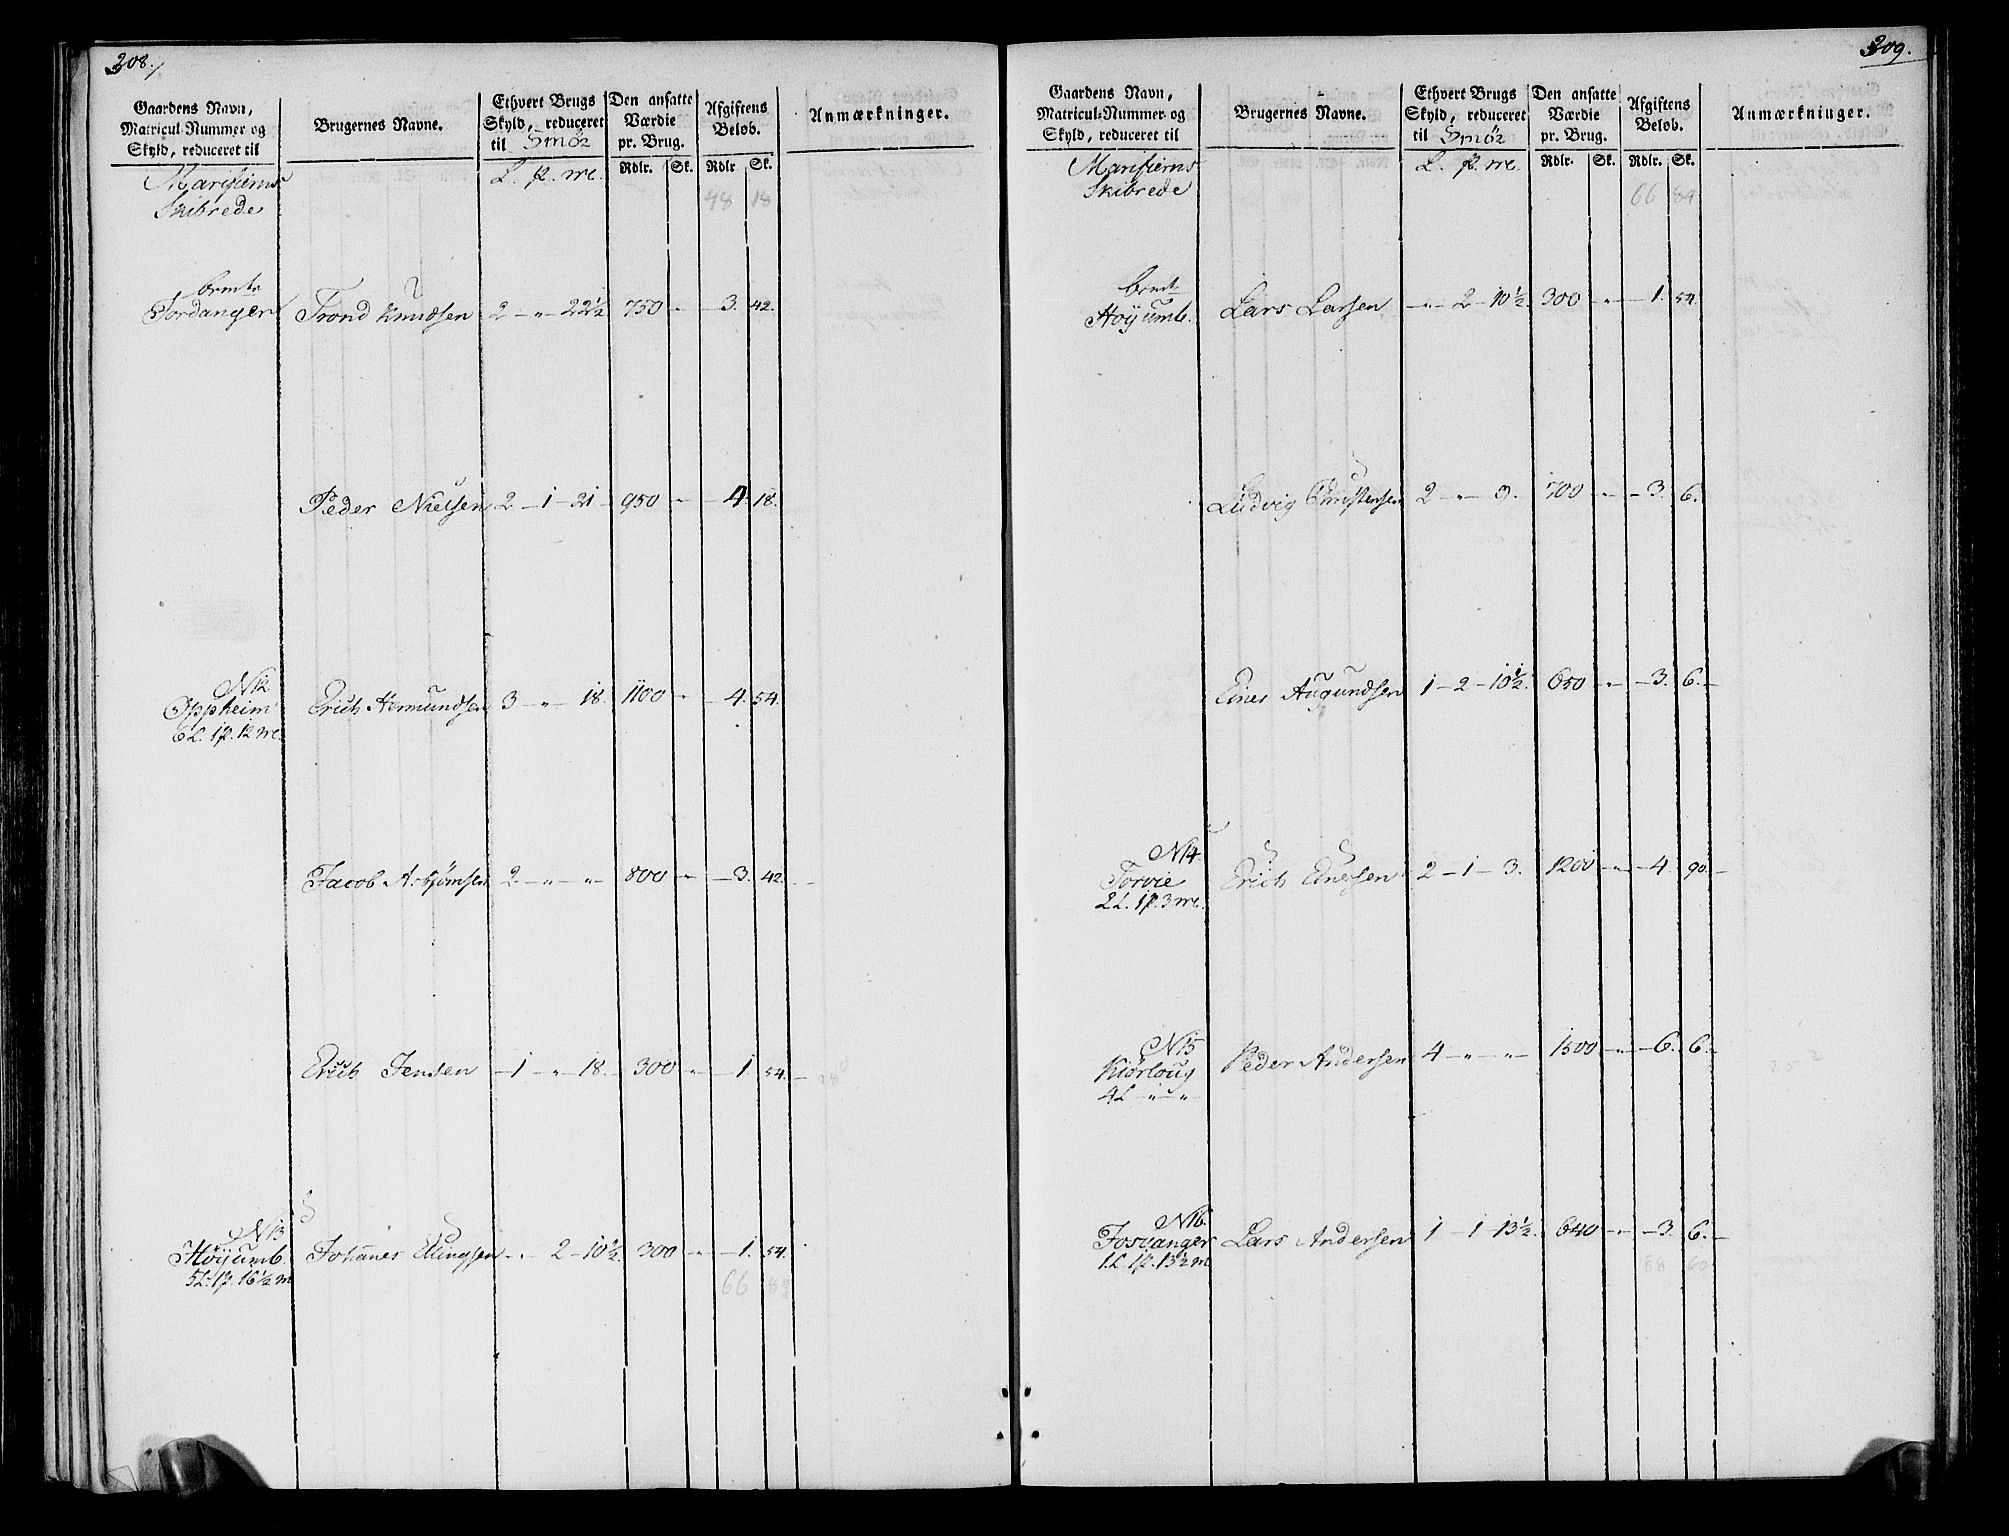 208.
Gaardens Navn,
Matricul-Nummer og
Skyld, reduceret til
Brugernes Navne.
Ethvert Brugs
Skyld, reduceret
til Smör
Den ansatte
Værdie
pr. Brug.
Afgiftens
Belöb.
Anmærkninger.
Rdlr. Sk. Rdlr Sk.
Marifierns
Skibrede
L. p. mk.
48 18
Fordanger Trond Knudsen 2 - " - 22½ 750 - " - 3. 42.
Peder Nielsen 2 - 1 - 21 - 950 - " - 4. 18.
N 12
Oppheim Erich Asmundsen 3 - " - 18. 1100 - " - 4. 54.
6 L. 1 p. 12 mk.
Jacob Asbjörnsen 2. - " - " - 800 - " - 3. 42. -
Erich Jensen - 1 - " - 18. 300 - " - 1. 54. -
N 13
Höyumb. Johannes Ellingsen - " - 2 - 10½. 300 - " - 1. 54.
5 L. 1 p. 16½ m
66 84
209.
Gaardens Navn,
Matricul-Nummer og
Skyld, reduceret til
Brugernes Navne.
Ethvert Brugs
Skyld, reduceret
til Smör
Den ansatte
Værdie
pr. Brug.
Afgiftens
Belöb.
Anmærkninger.
Rdlr. Sk. Rdlr. Sk.
Marifierns
Skibrede
L. p. mk.
66 84
Höyumb. Lars Larsen - " - 2 - 10½. 300 - " - 1. 54.
Ludvig Christensen 2 - " - 9. 700 - " - 3. 6.
Einer Augundsen 1 - 2 - 10½. 650 - " - 3. 6. -
N 14.
Torvie Erich Einersen 2 - 1 - 3. 1200 - " - 4. 90. -
2 L. 1 p. 3 mk.
N 15
Kiörloug Peder Andersen 4 - " - " - 1500 - " - 6. 6. -
4 L - " - " -
N 16.
Fosvanger Lars Andersen 1 - 1 - 13½. 640 - " - 3. 6. -
1. L. 1 p. 13½ m
88 60